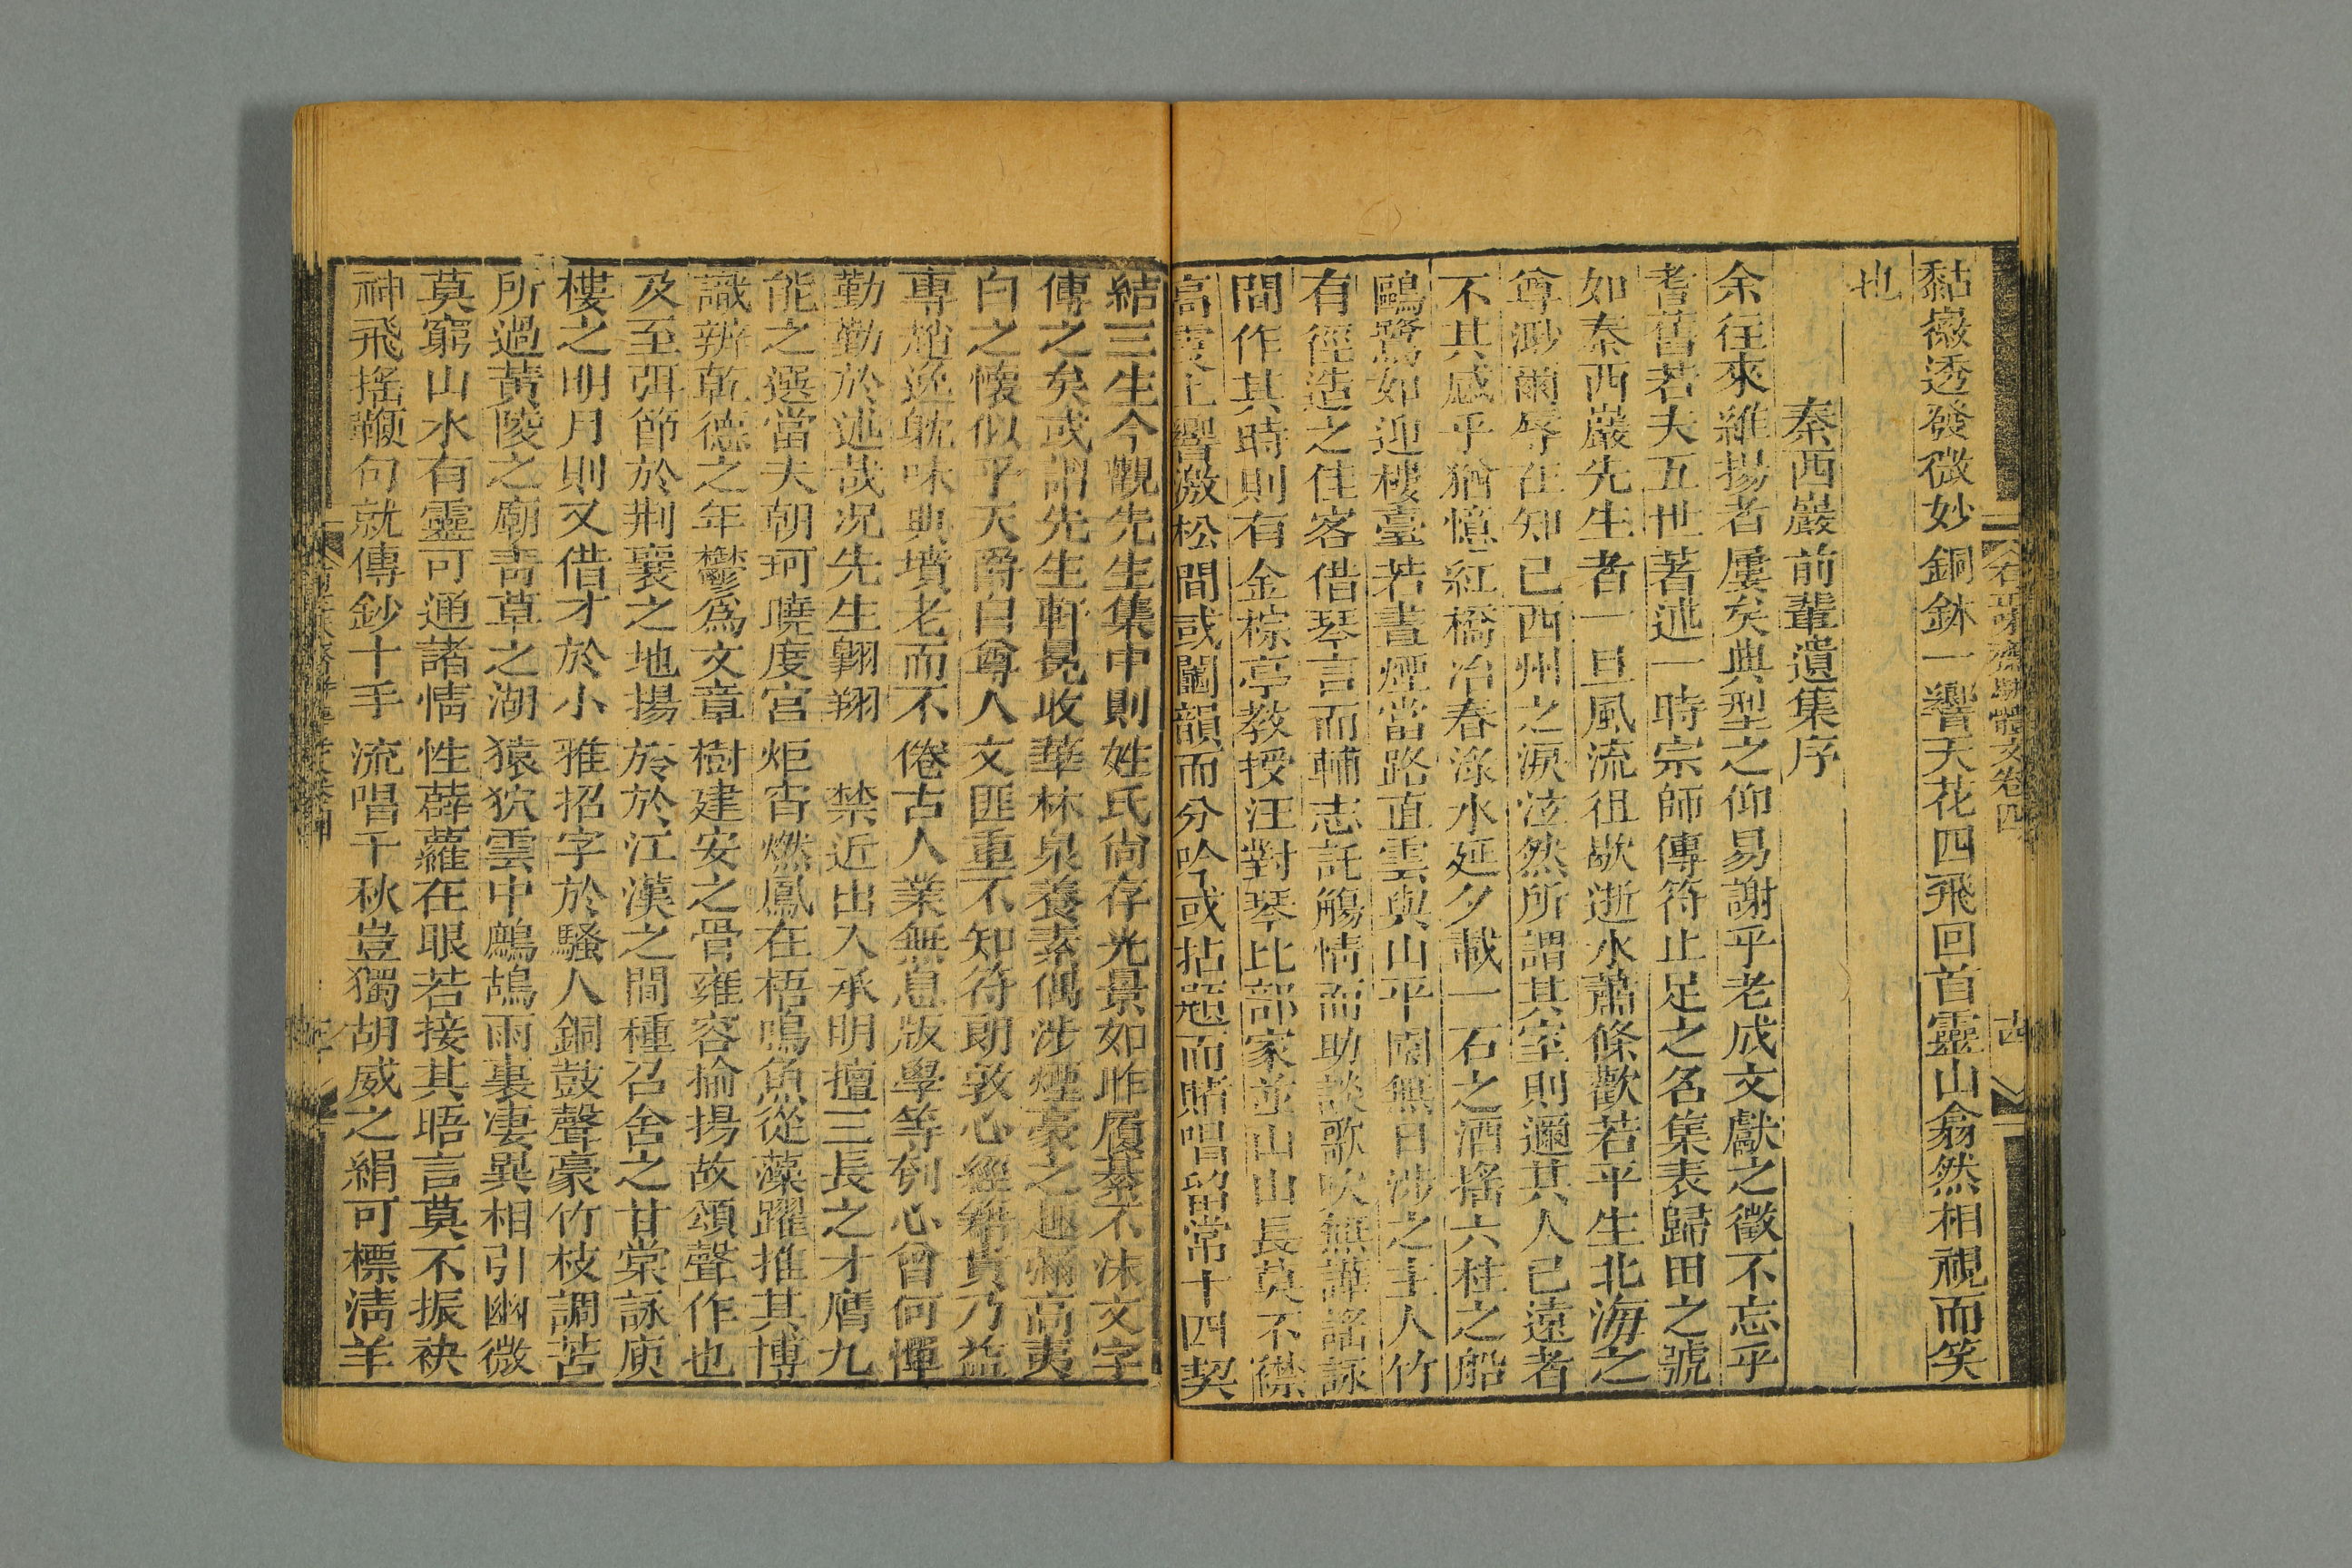 黏㠓透發微妙銅鉢一響天花四飛回首靈山翕然相視而笑
也
秦西巖前輩遺集序
余往來維揚者屢矣典型之仰易謝乎老成文獻之徵不忘乎
耆舊若夫五世著述一時宗師傳符止足之名集表歸田之號
如秦西巖先生者一旦風流徂歇逝水蕭條歡若平生北海之
尊渺爾辱在知己西州之淚泫然所謂其室則邇其人已遠者
不其感乎猶憶紅橋冶春淥水延夕載一石之酒搖六柱之船
鷗鷺如迎樓臺若晝煙當路直雲與山平園無日涉之主人竹
有徑造之佳客借琴言而輔志託觴情而助談歌吹無譁謠詠
間作其時則有金棕亭教授汪對琴比部家並山山長莫不襟
高雲上響激松間或鬮韻而分吟或拈題而賭唱留常十四契
結三生今觀先生集中則姓氏尙存光景如昨履綦不沬文字
傳之矣或謂先生軒冕收華林泉養素偶涉煙豪之趣彌高夷
白之懷似乎天爵自尊人文匪重不知符朗敦心經籍貴乃益
專趙逸耽味典墳老而不倦古人業無息版學等刳心曾何憚
勤勤於述哉況先生翱翔 禁近出入承明擅三長之才膺九
能之選當夫朝珂曉度宮炬宵燃鳳在梧鳴魚從藻躍推其博
識辨乾德之年鬱爲文章樹建安之骨雍容揄揚故頌聲作也
及至弭節於荆襄之地揚於於江漢之間種召舍之甘棠詠庾
樓之明月則又借才於小雅招字於騷人銅鼓聲豪竹枝調苦
所過黃陵之廟靑草之湖猿狖雲中鷓鴣雨裏淒異相引幽微
莫窮山水有靈可通諸情性薜蘿在眼若接其晤言莫不振袂
神飛搖鞭句就傳鈔十手流唱千秋豈獨胡威之絹可標淸羊
有正味齋駢體文卷四
十四